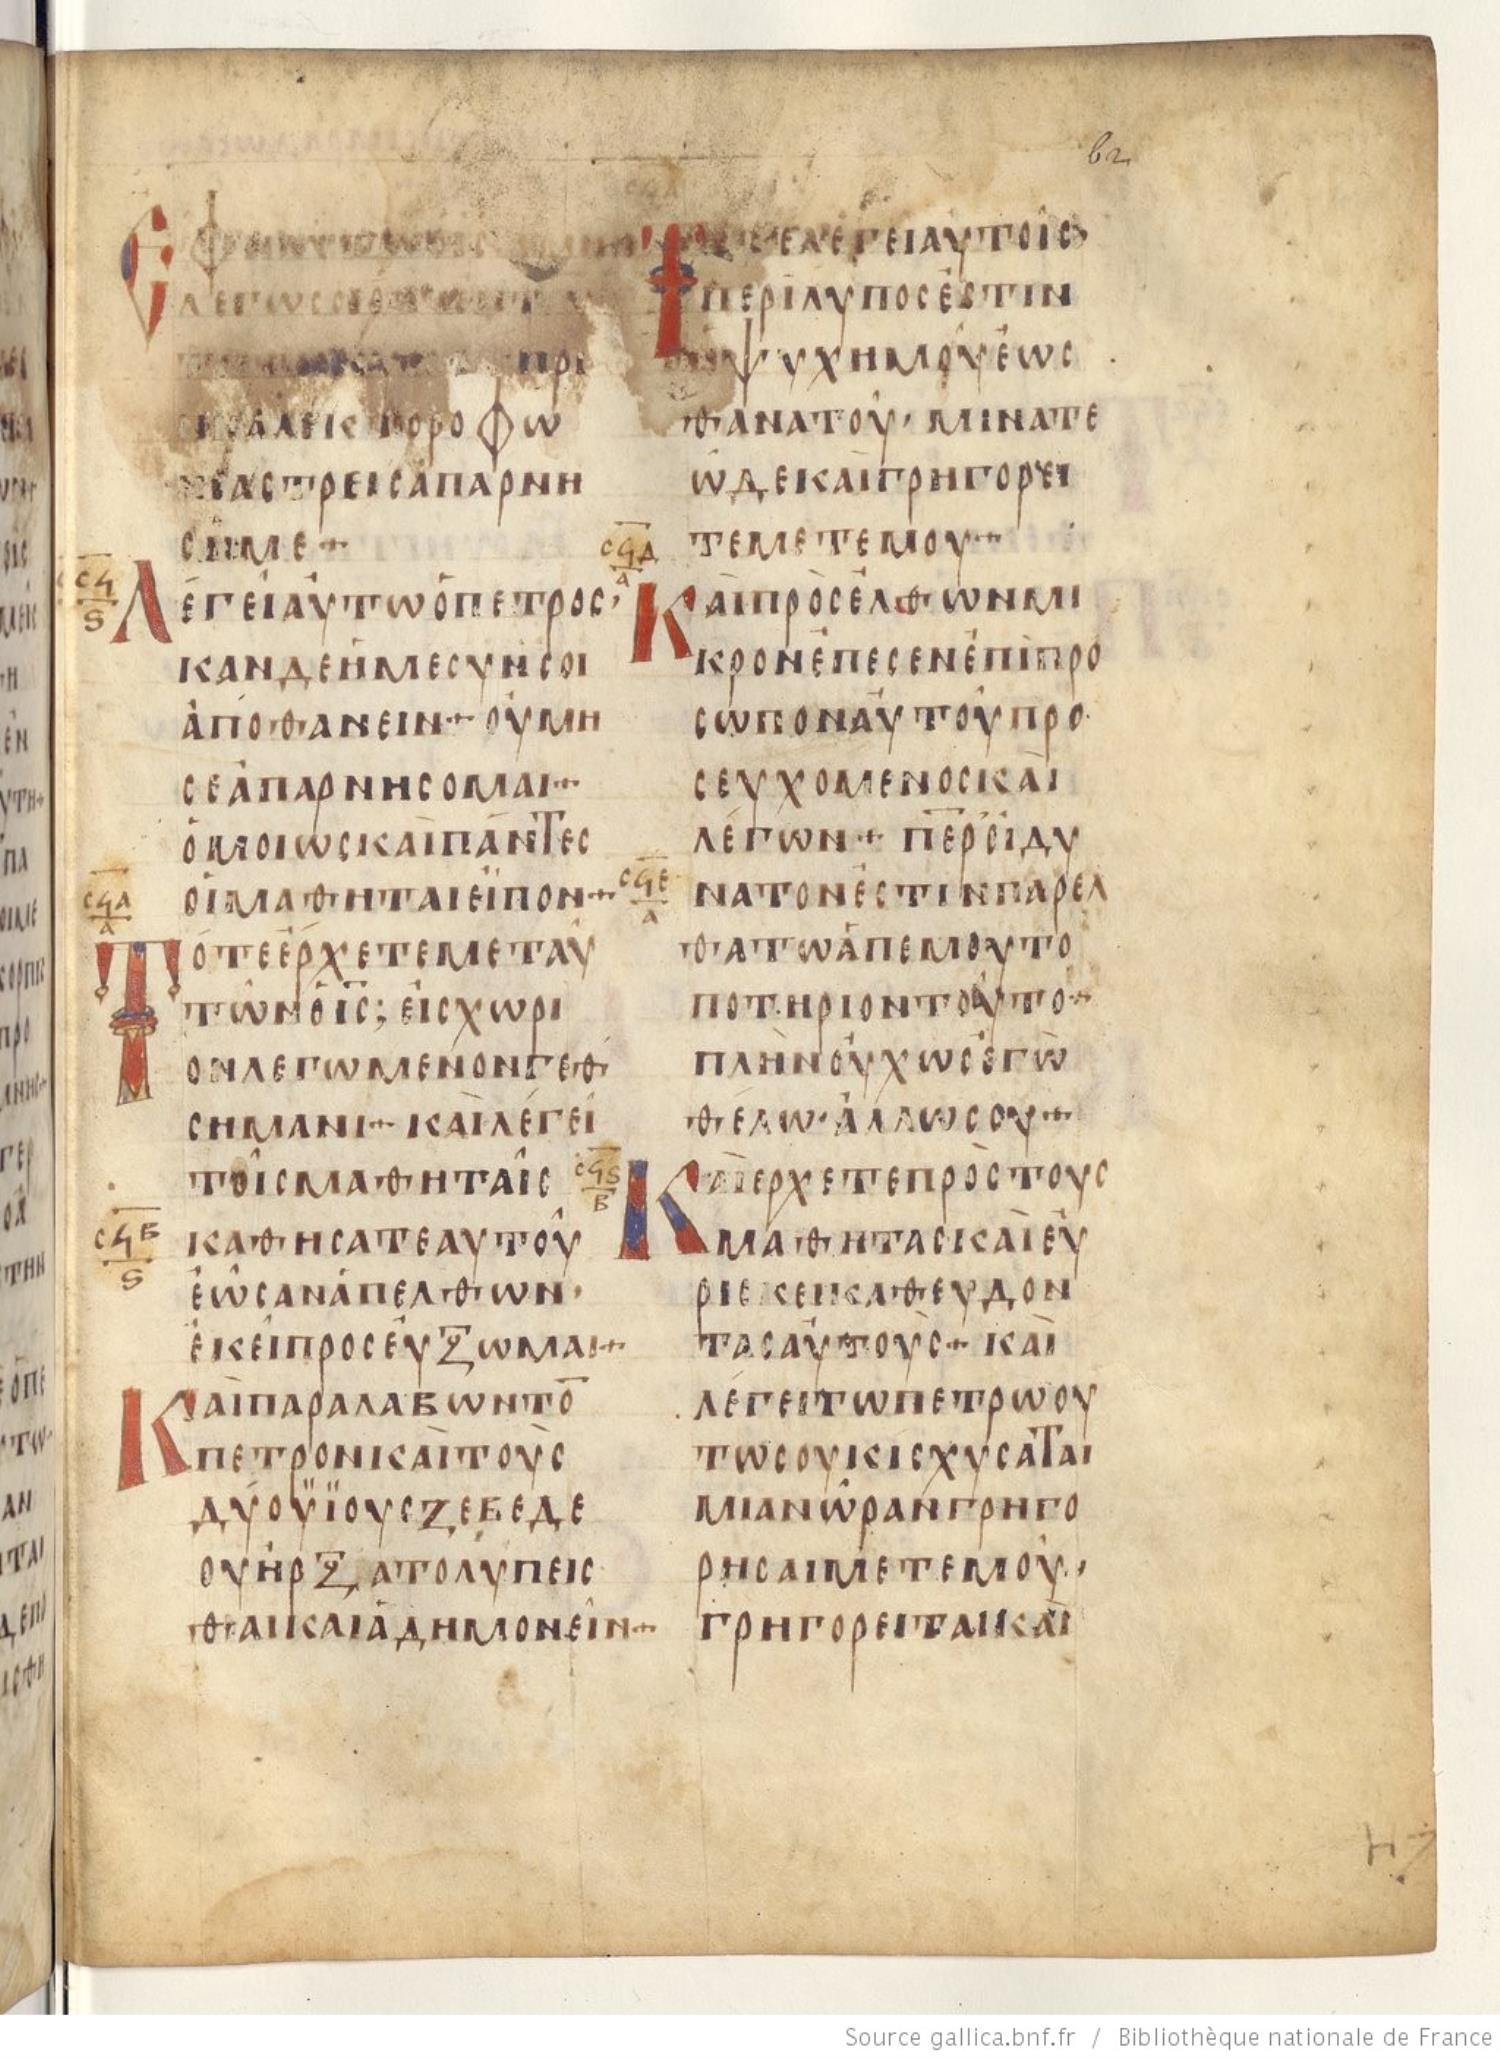 62
Ε
λεγωσοι
πρι
αλεκτορο φω
νειας τρεις απαρνη
σιμε +
σϟ ς
Λεγει αυτω ο πετρος,
καν δεη με συν σοι
αποθανειν + ου μη
σε απαρνησομαι +
ομοιως και παντες
οι μαθηται ειπον +
σϟα α
Τότε ερχετε μετ αυ
των ο ις; εις χωρι
ον λεγωμενον γεθ
σημανι + και λεγει
τοις μαθηταις
σϟβ ς
καθησατε αυτου
εως αν απελθων,
εκει προσευξωμαι +
Και παραλαβων το̄
πετρον και τους
δυο ϋϊους ζεβεδε
ου ηρξατο λυπεις
θαι και αδημονειν +
Τ λεγει αυτοις
περιλυπος εστιν
ψυχη μου εως
θανατου, μινατε
ωδε και γρηγορει
τε μετ εμου +
σϟδ α
Και προσελθων μι
κρον επεσεν επι προ
σωπον αυτου προ
σευχομενος και
λεγων + π̅ε̅ρ̅ ει δυ
σϟε α
νατον εστιν παρελ
θατω απ εμου το
ποτηριον τουτο +
πλην ουχ ως εγω
θελω, αλλ ως συ +
σϟς β
Και ερχετε προς τους
μαθητας και ευ
ρισκει καθευδον
τας αυτους + και
λεγει τω πετρω ου
τως ουκ ισχυσαται
μιαν ωραν γρηγο
ρησαι μετ εμου,
γρηγορειται και
Source gallica.bnf.fr / Bibliothèque nationale de France